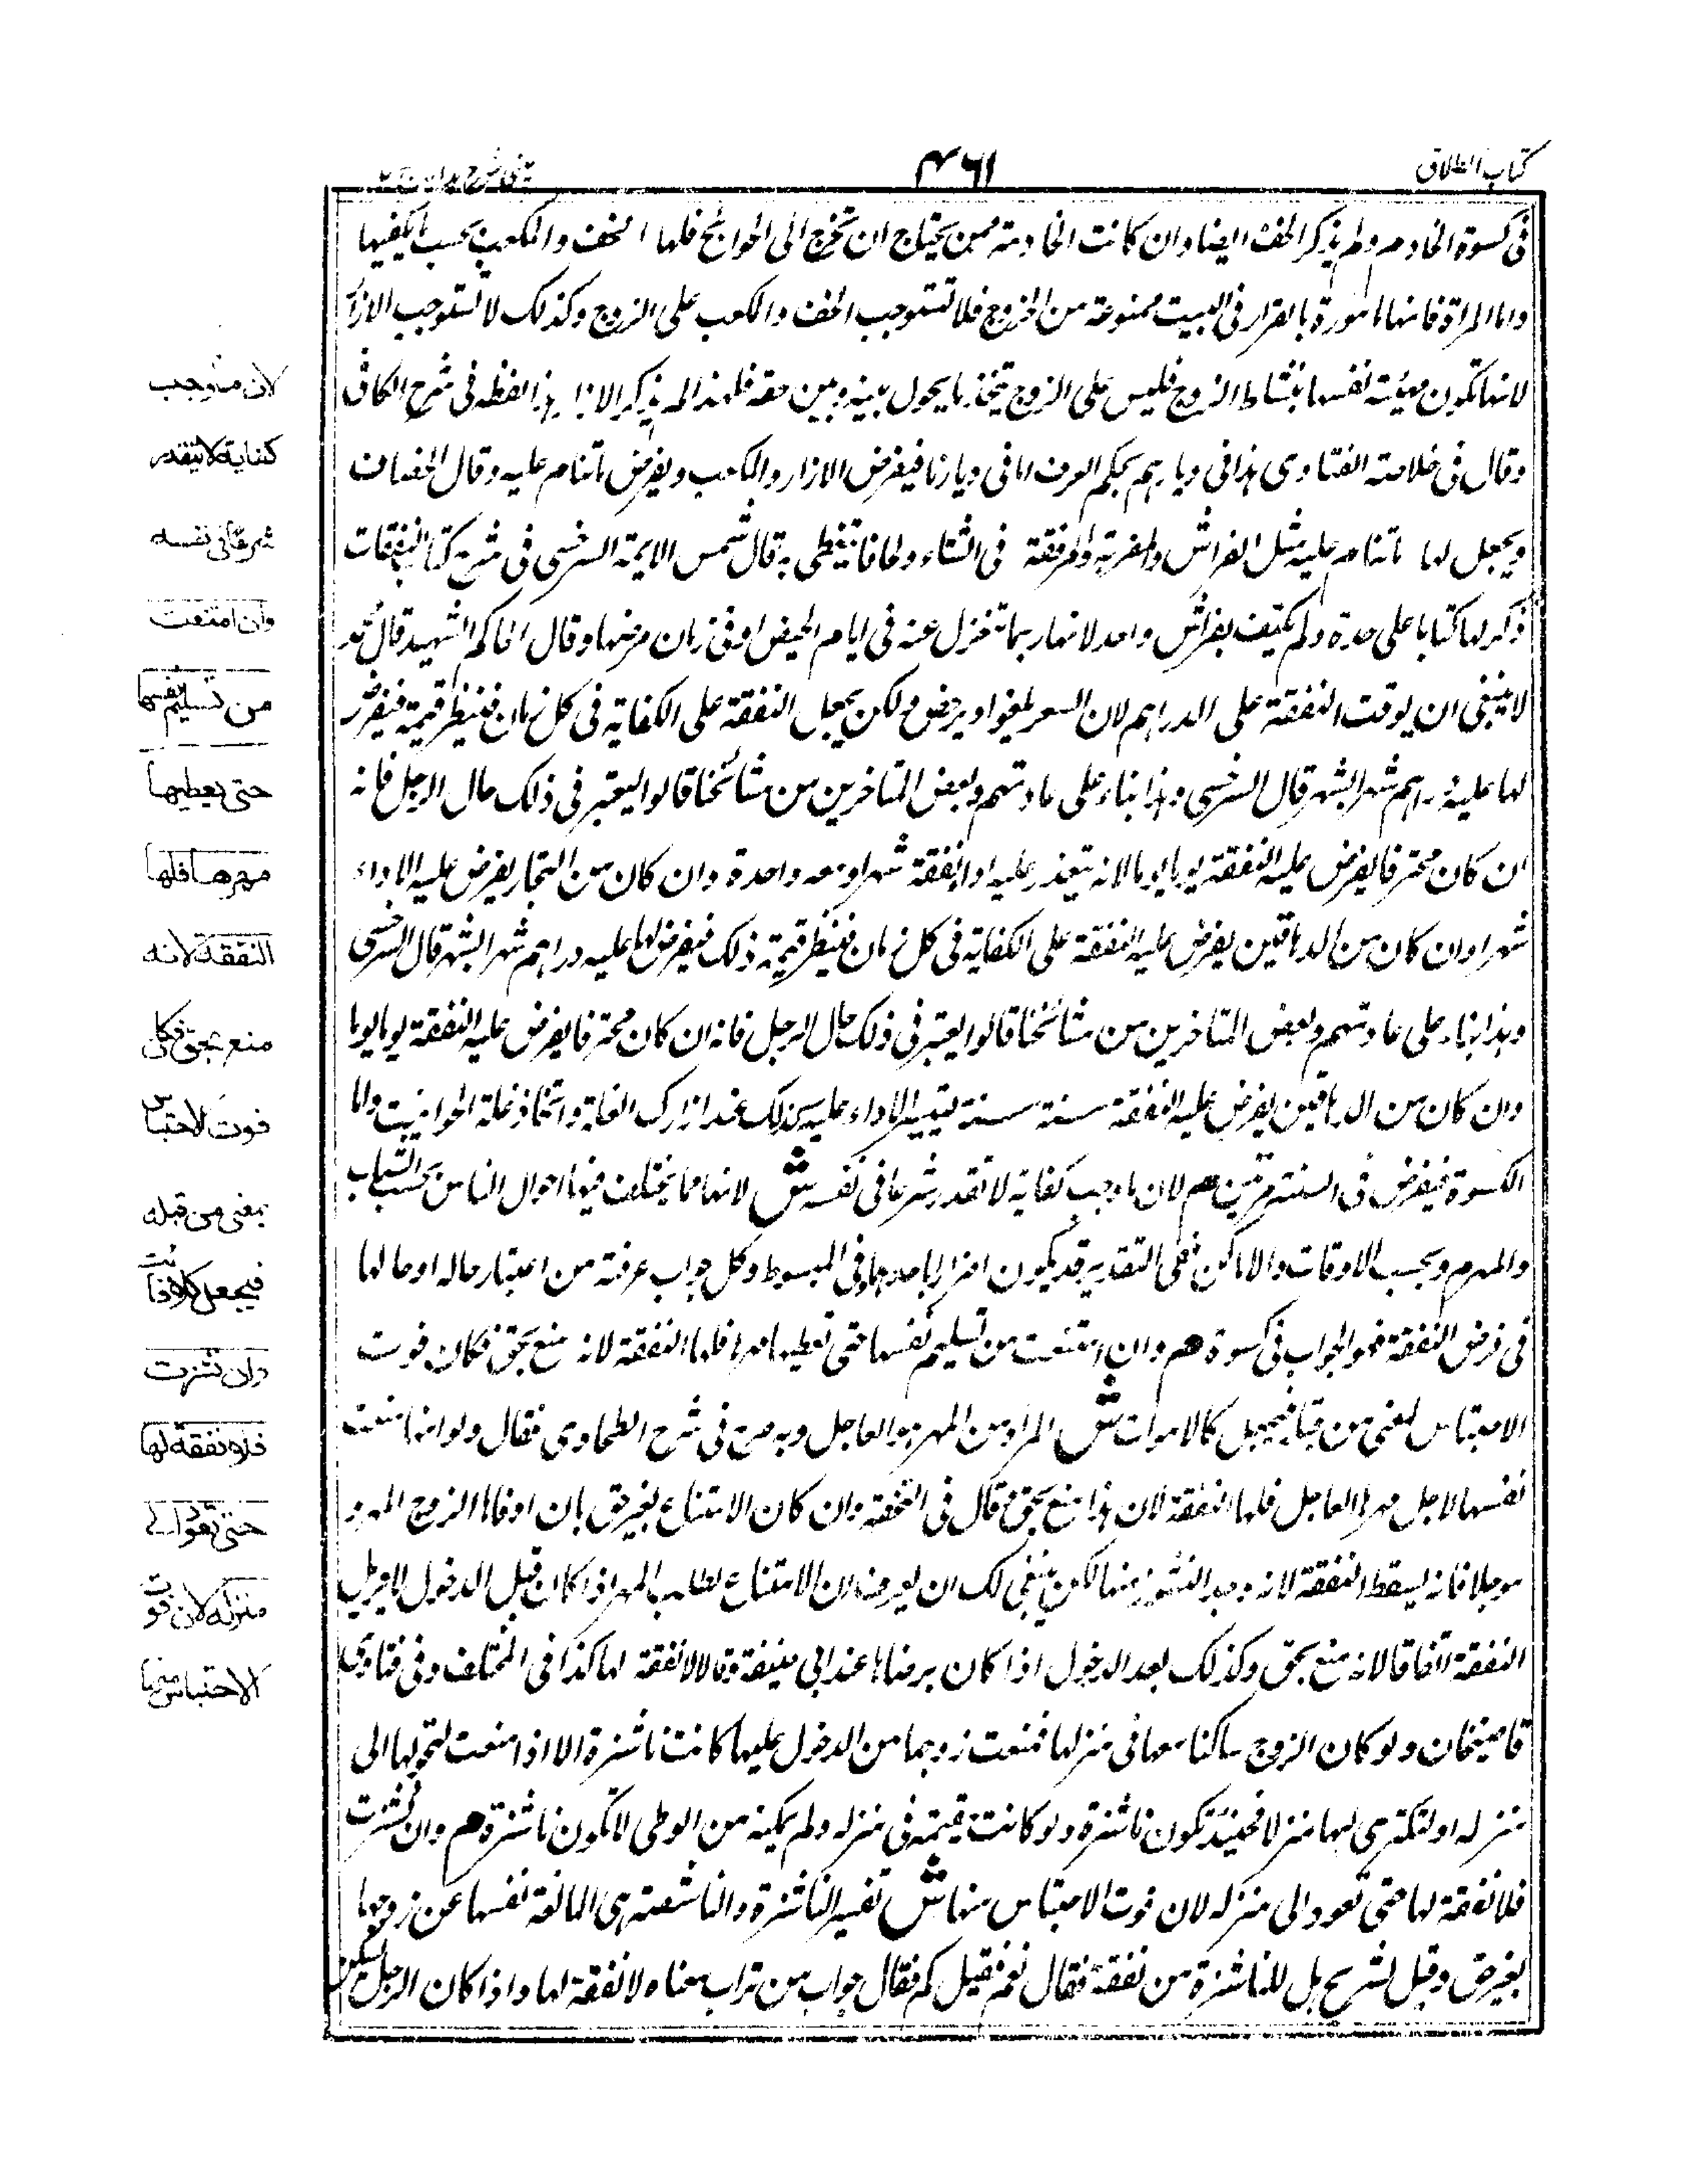 كتاب الطلاق
٤٦١
عينى شرح هدايه ج ٢
فى كسوة الخادم ولم يذكر الخف ايضا وان كانت الخادمة ممن يحتاج ان تخرج الى الحوائج فلها الخف والمكعب بحسب ما يكفيها
واما المرأة فانها مامورة بالقرار فى البيت ممنوعة من الخروج فلا تستوجب الخف والمكعب على الزوج وكذلك لا تستوجب الازار
لانها تكون مهيئة نفسها بنشاط الزوج فليس على الزوج تيخذ ما يحول بينه وبين حقه فلهذا لم يذكر الازار هذا لفظه فى شرح الكافى
وقال فى خلاصة الفتاوى هذا فى ديارهم بحكم العرف اما فى ديارنا فيفرض الازار والمكعب ويفرض ما تنام عليه وقال الخصاف
ويجعل لها ما تنام عليه مثل الفراش والمضربة والمرفقة فى الشتاء ولحافا تتغطى به قال شمس الايمة السرخسى فى شرح كتاب النفقات
ذكر لها كتابا على حدة ولم يكتف بفراش واحد لانها ربما تنعزل عنه فى ايام الحيض او فى زمان مرضها وقال الحاكم الشهيد قال محمد
لا ينبغى ان يوقت النفقة على الدراهم لان السعر يغلو او يرخص ولكن يجعل النفقة على الكفاية فى كل زمان فينظر قيمة فيفرض
لها عليه دراهم شهرا بشهر قال السرخسى وهذا بناء على عادتهم وبعض المتاخرين من مشائخنا قالوا ليعتبر فى ذلك حال الرجل فانه
ان كان محترفا يفرض عليه النفقة يوما يوما لانه يتعذر عليه اداء نفقة شهرا ودفعه واحدة وان كان من التجار يفرض عليه الاداء
شهرا وان كان من الدهاقين يفرض عليه النفقة على الكفاية فى كل زمان فينظر قيمة ذلك فيفرض لها عليه دراهم شهرا بشهر قال السرخسى
وهذا بناء على عادتهم وبعض المتاخرين من مشائخنا قالوا يعتبر فى ذلك حال الرجل فانه ان كان محترفا يفرض عليه النفقة يوما يوما
وان كان من الدهاقين يفرض عليه النفقة سنة سنة يتيسر الاداء عليه كذلك عند ادراك الغلة واتخاذ غلة الحوانيت واما
الكسوة فيفرض فى السنة مرتين هم لان ما وجب كفاية لا تقدر شرعا فى نفسه ش لانها مما يختلف فيها احوال الناس بحسب الشباب
والهرم وبحسب الاوقات والاماكن ففى التقدير قد يكون اضرارا باحدهما وفى المبسوط وكل جواب عرفته من اعتبار حاله او حالها
فى فرض النفقة فهو الجواب فى كسوة هم وان امتنعت من تسليم نفسها حتى تعطيها مهرها فلها النفقة لانه منع بحق فكان فوت
الاحتباس لمعنى من قبله فيجعل كلا فوات ش المراد من المهر هو العاجل وبه صرح فى شرح الطحاوى فقال ولو انها منعت
نفسها لاجل مهرها العاجل فلها النفقة لان هذا منع بحق وقال فى التحفة وان كان الامتناع بغير حق بان اوفاها الزوج المهر و
موجلا فانه يسقط النفقة لانه وجد النشوز منها لكن ينبغى لك ان تعرف ان الامتناع لطلب المهر اذا كان قبل الدخول لا يزيل
النفقة اتفاقا لانه منع بحق وكذلك بعد الدخول اذا كان برضاها عند ابى حنيفة وقالا لا نفقة لها كذا فى المختلف وفى فتاوى
قاضيخان ولو كان الزوج ساكنا معها فى منزلها فمنعت زوجها من الدخول عليها كانت ناشزة الا اذا منعت لتحولها الى
منزله او لتكترى لها منزلا فحينئذ تكون ناشزة ولو كانت مقيمة فى منزله ولم يمكنه من الوطى لا تكون ناشزة هم وان نشزت
فلا نفقة لها حتى تعود الى منزله لان فوت الاحتباس منها ش تفسير الناشزة والناشصة هى المانعة نفسها عن زوجها
بغير حق وقيل لشريح هل للناشزة من نفقة فقال نعم فقيل كم فقال جراب من تراب معناه لا نفقة لها واذا كان الرجل يسكن
لان ما وجب
كفاية لا تتقدر
شرعا فى نفسه
وان امتنعت
من تسليم نفسها
حتى يعطيها
مهرها فلها
النفقة لانه
منع بحق فكان
فوت الاحتباس
بمعنى من قبله
فيجعل كلا فائت
وان نشزت
فلا نفقة لها
حتى تعود الى
منزله لان فوت
الاحتباس منها